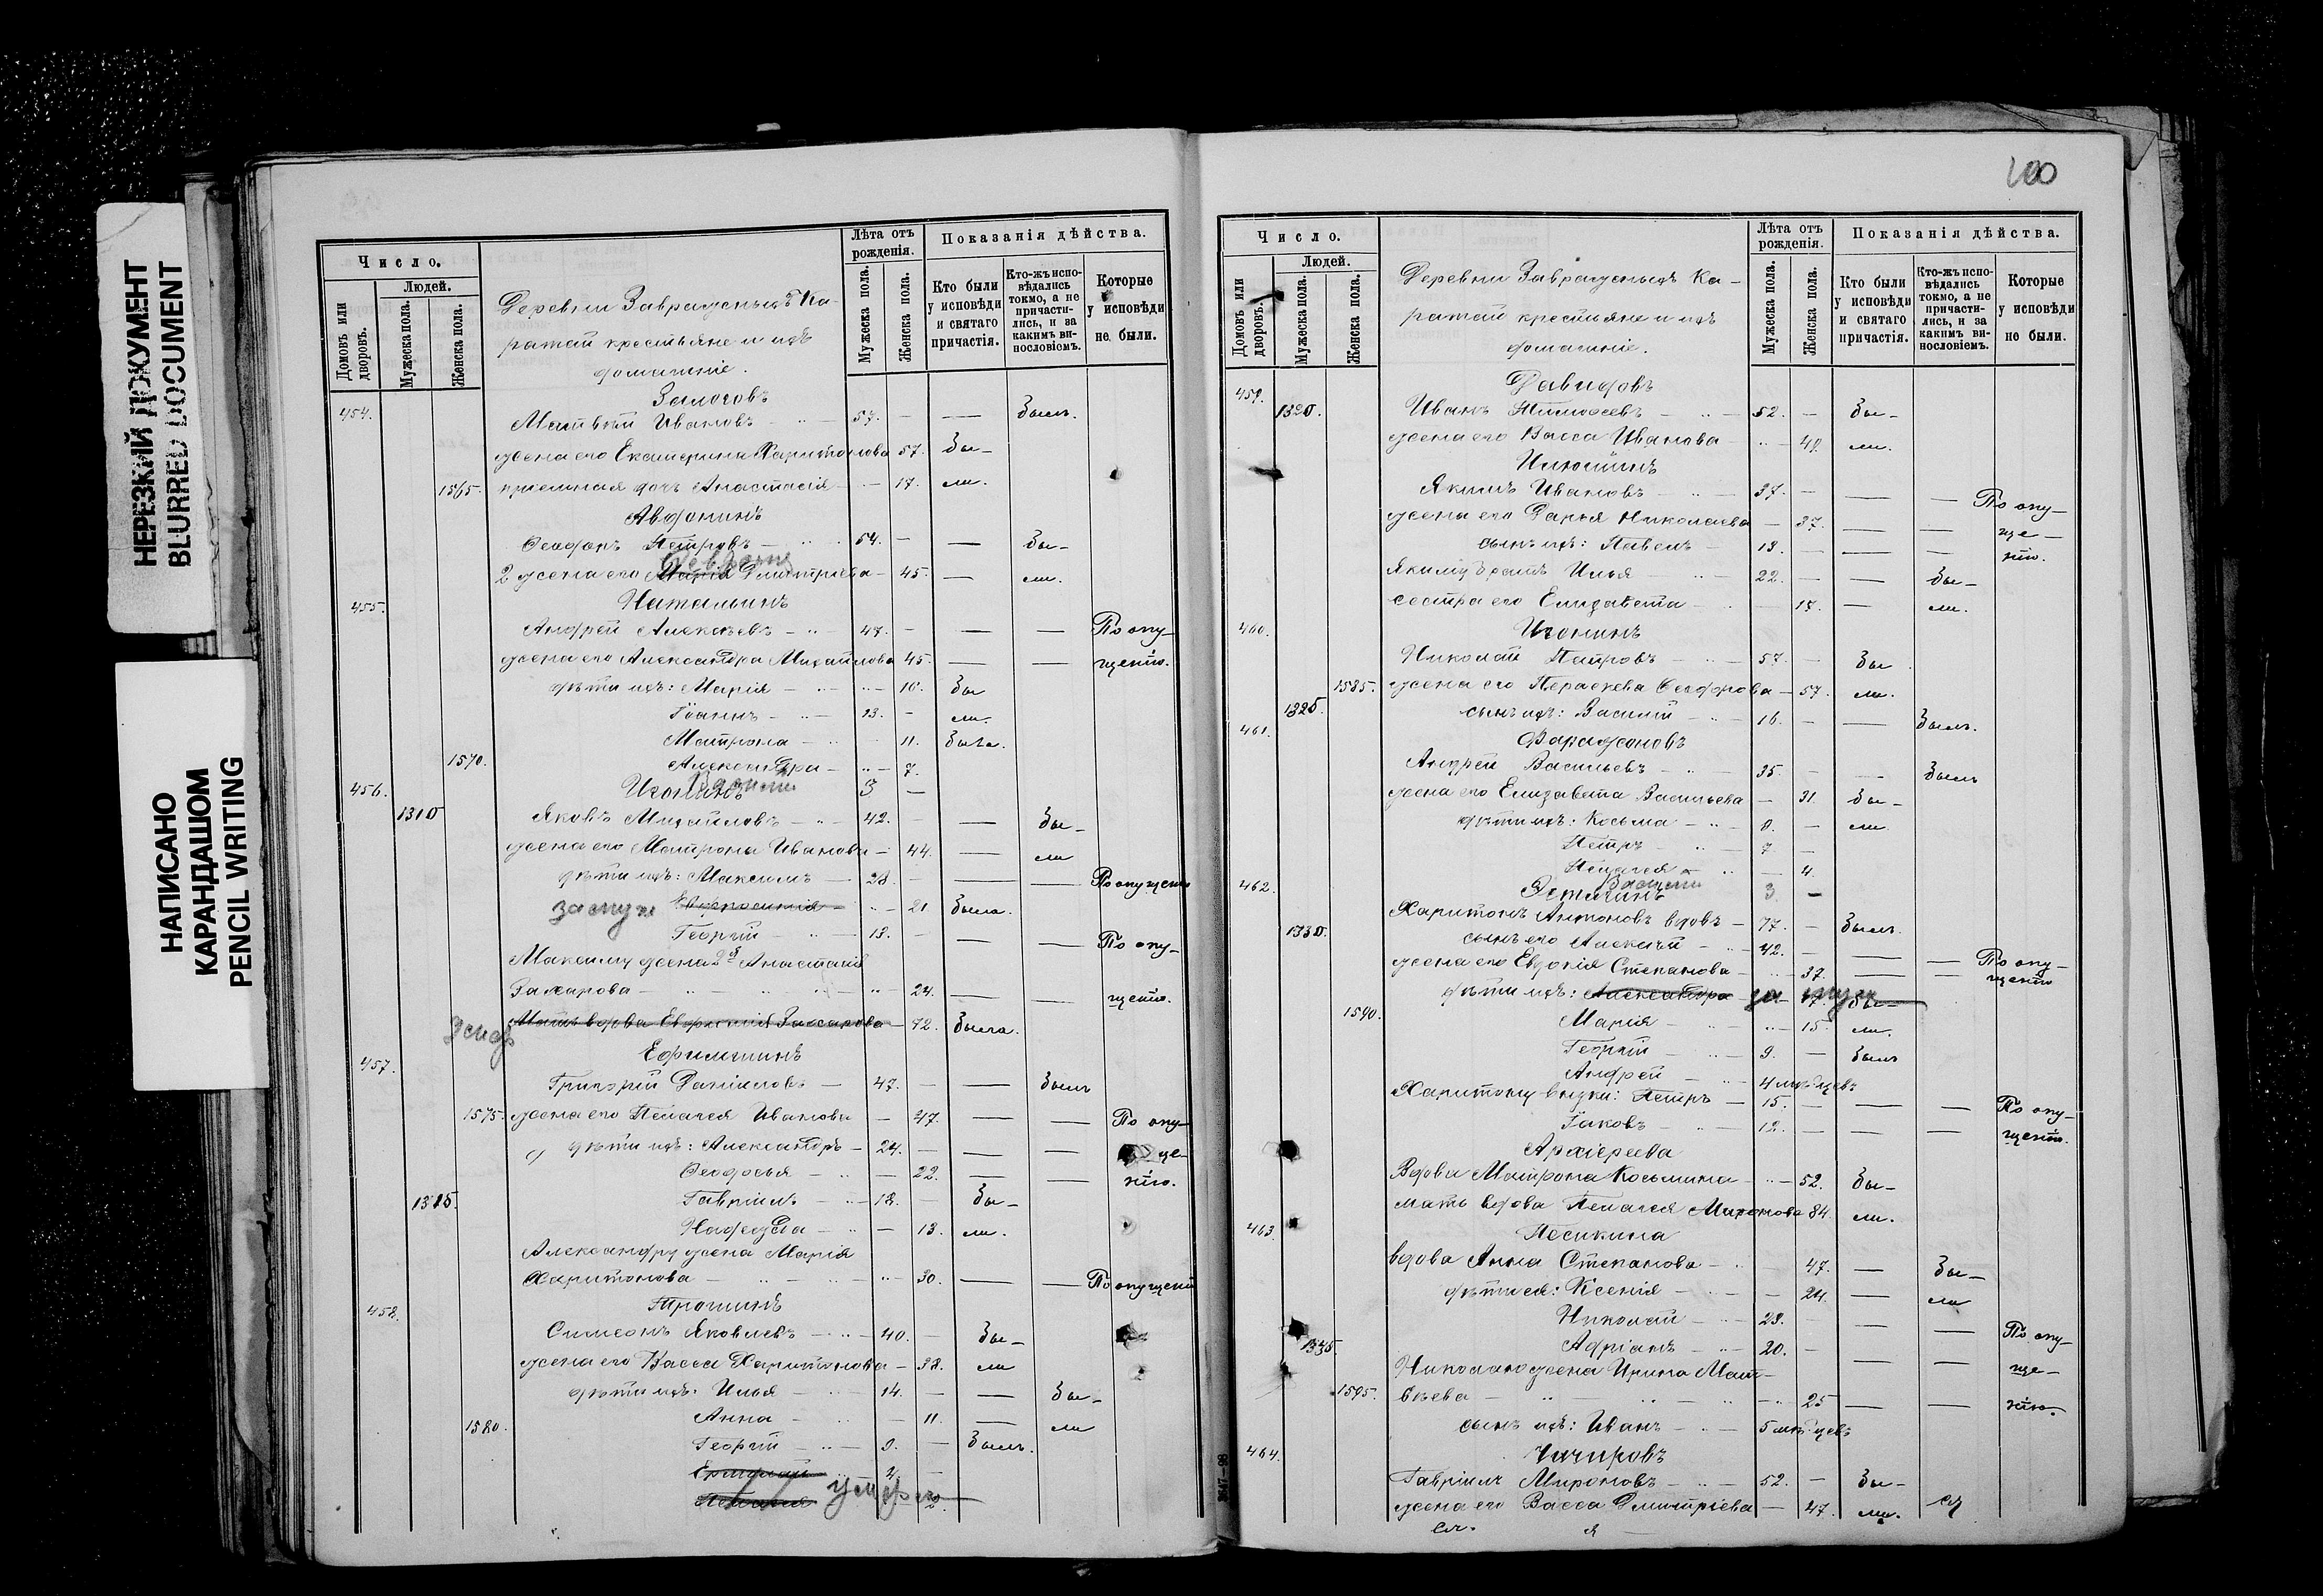 НЕРЕЗКИЙ ДОКУМЕНТ
BLURRED DOCUMENT
НАПИСАНО
КАРАНДАШОМ
PENCIL WRITING
Число.
Лѣта отъ рожденія.
Показанія дѣйства.
Домовъ или дворовъ.
Людей.
Мужеска пола.
Женска пола.
Мужеска пола.
Женска пола.
Кто были у исповѣди и святаго причастія.
Кто-жъ исповѣдались токмо, а не причастились, и за какимъ винословіемъ.
Которые у исповѣди не были.
Деревни Завражныхъ Ка-
ратай крестьяне и ихъ
домашніе.
454.
Матвѣй Ивановъ — 57. — — Былъ.
жена его Екатерина Харитонова 57. Бы-
1565. приемная дочь Анастасія — 17. ли.
Авдонинъ
Ѳеодоръ Петровъ — 54. — — Бы-
2 жена его Марія Дмитріева — 45. — ли.
455. Натальинъ
Андрей Алексѣевъ — 47. — — — По опу-
жена его Александра Михайлова 45. — — щенію.
дѣти ихъ: Марія — 16. Бы
Іоаннъ — 13. — ли.
Матрона — 11. Была.
1570. Александра — 7.
Василій 3 —
456. Игонинъ
1310 Яковъ Михайловъ — 42. — — Бы-
жена его Матрона Иванова — 44. — ли
дѣти ихъ: Максимъ — 23. — — — По опущенію
замуж Евфросинія — 21 Была.
Георгій — 13. — — — По опу-
Максиму жена 2я Анастасія
Захарова — 24. — — щенію.
Мать вдова Евфимія Захарова — 72. Была.
457. Ефимшинъ
Григорій Даніиловъ — 47. — — Былъ
1575. жена его Пелагея Иванова — 47. — — По опу-
дѣти ихъ: Александръ — 24. — — — ще-
Ѳеодосья — 22. — — нію.
1315. Гавріилъ — 18. — Бы-
Надежда — 13. ли.
Александру жена Марія
Харитонова — 30. — — По опущенію
458. Трошинъ
Симеонъ Яковлевъ — 40. — Бы-
жена его Васса Харитонова — 38. ли
дѣти ихъ: Илья — 14. — — Бы-
1580. Анна — 11. — ли
Георгій — 9. — Былъ.
Пелагія умер. 2.
100
Число.
Лѣта отъ рожденія.
Показанія дѣйства.
Домовъ или дворовъ.
Людей.
Мужеска пола.
Женска пола.
Мужеска пола.
Женска пола.
Кто были у исповѣди и святаго причастія.
Кто-жъ исповѣдались токмо, а не причастились, и за какимъ винословіемъ.
Которые у исповѣди не были.
Деревни Завражныхъ Ка-
ратай крестьяне и ихъ
домашніе.
459. Давидовъ
1320. Иванъ Тимоѳеевъ — 52. — Бы-
жена его Васса Иванова — 49. ли.
Илюшинъ
Якимъ Ивановъ — 37. — — — По опу-
жена его Дарья Николаева — 37. — — ще-
сынъ ихъ: Павелъ — 13. — — — нію.
Якиму братъ Илья — 22. — — Бы-
сестра его Елизавета — 17. — ли.
460. Игонинъ
Николай Петровъ — 57. — Бы
1585. жена его Параскева Ѳеодорова — 57. ли.
1325. сынъ ихъ: Василій — 16. — — Былъ.
461. Фаражоновъ
Андрей Васильевъ — 35. — — Былъ
жена его Елизавета Васильева — 31. Бы-
дѣти ихъ: Косьма — 9. — ли.
Петръ — 7 —
Пелагея — 4.
Василій 3 —
462.
1330. Харитонъ Антоновъ вдовъ — 77. — Былъ.
сынъ его Алексѣй — 42. — — — По опу-
жена его Евдокія Степанова — 37. — — щенію
дѣти ихъ: Александра — за муж 17. Бы-
1590. Марія — 15. ли.
Георгій — 9. — Былъ
Андрей — 4 мѣсяцевъ
Харитону внуки: Петръ — 15. — — — По опу-
Іаковъ — 12. — — — щенію.
Архіереева
Вдова Матрона Косьмина — 52. Бы-
мать вдова Пелагея Миронова 84. ли.
463. Песикина
вдова Анна Степанова — 47. — Бы-
дѣти ея: Ксенія — 24. — ли
Николай — 23. — — — По опу-
1335. Адріанъ — 20. — — — ще-
Николаю жена Ирина Мат-
1595. вѣева — 25 — — нію.
сынъ ихъ: Иванъ — 5 мѣсяцевъ
464. Чичировъ
Гавріилъ Мироновъ — 52. — Бы-
жена его Васса Дмитріева — 47. ли.